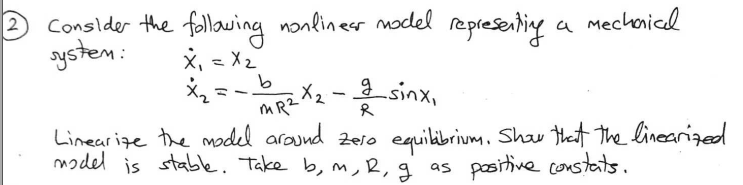 2) Consider the following nonlinear model representing a mechanical
system: ẋ₁ = x₂
ẋ₂ = - b/mR² x₂ - g/R sinx₁
Linearize the model around zero equilibrium. Show that the linearized
model is stable. Take b, m, R, g as positive constats.